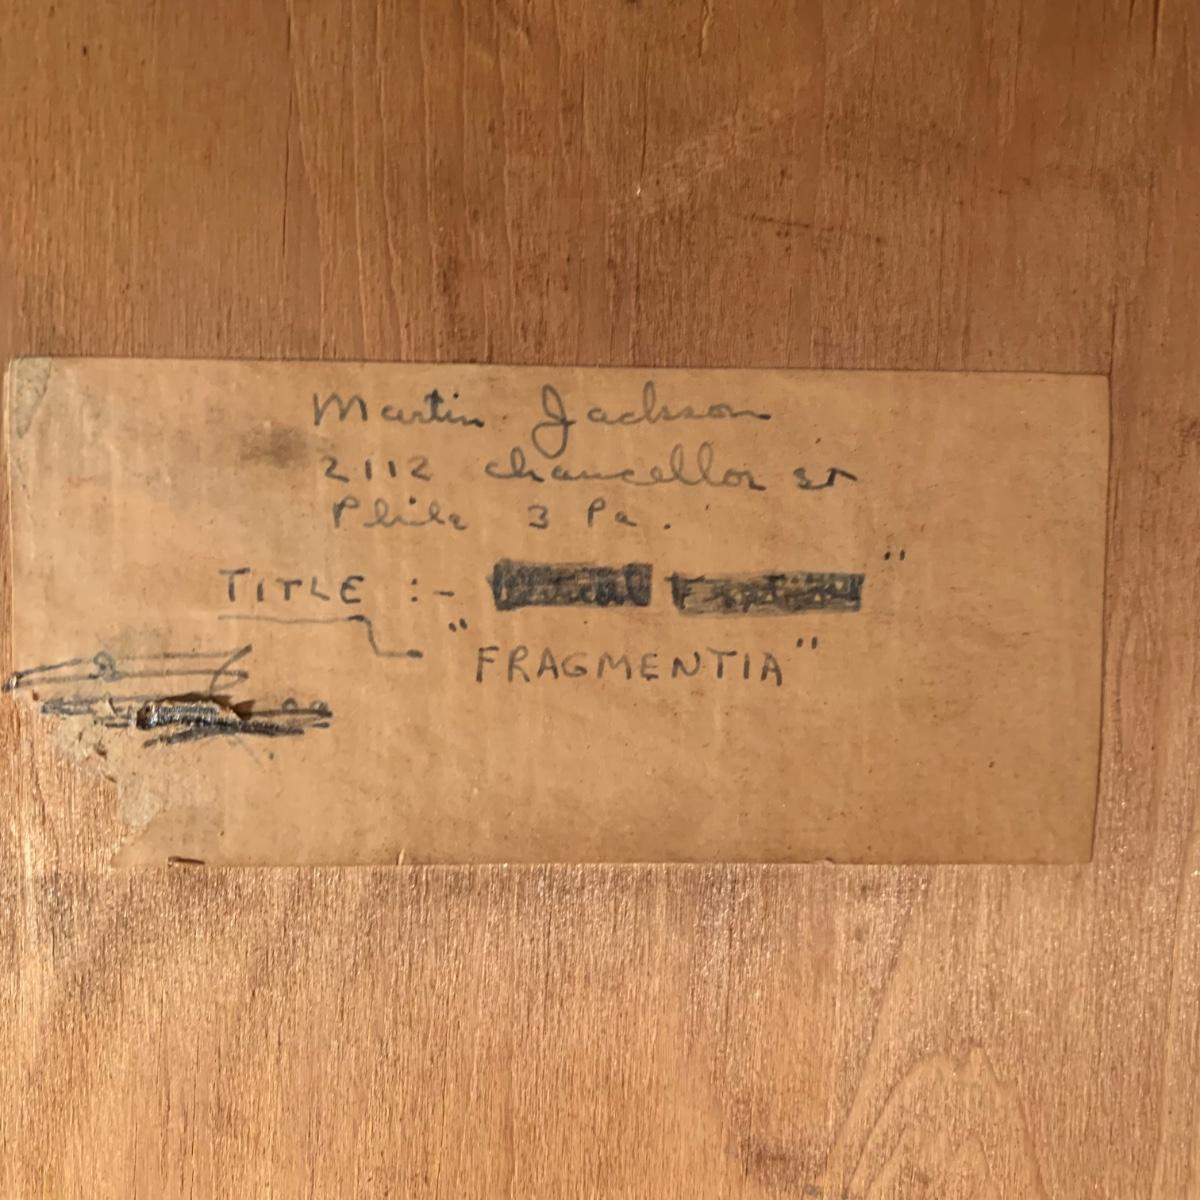 Martin Jackson
2112 Chancellor St
Phila 3 Pa.
TITLE :- "
"FRAGMENTIA"